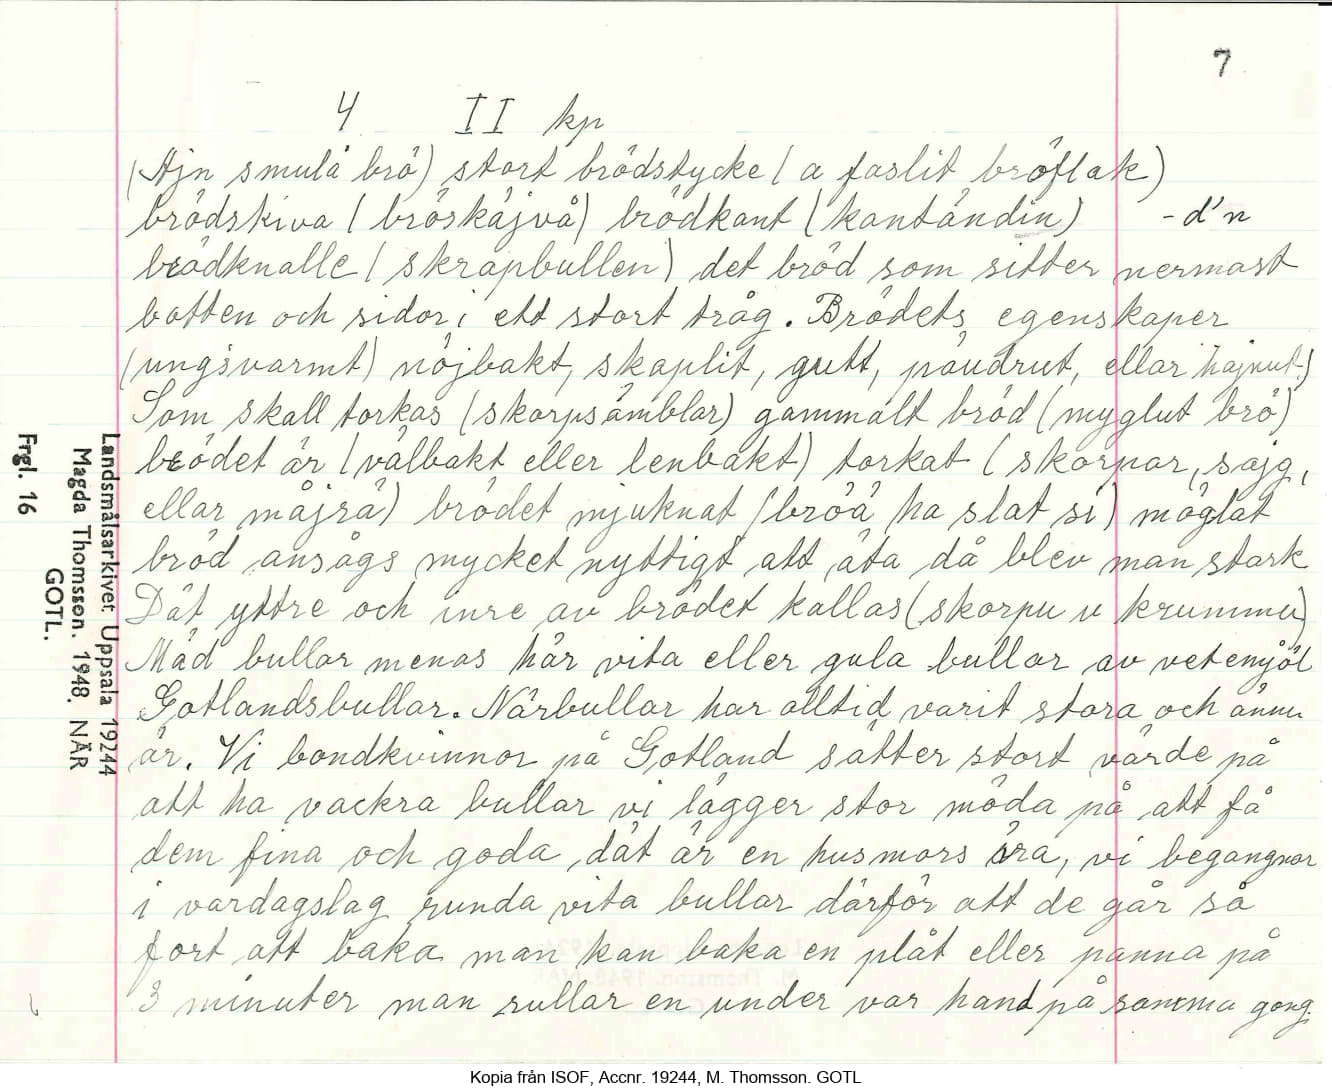 7
4 II kp
(Ajn smulå brö) stort brödstycke (a faslit bröflak)
brödskiva (bröskäjvå) brödkant (kantändin) -d'n
brödknalle (skrapbullen) det bröd som sitter nermast
botten och sidor i ett stort tråg. Brödets egenskaper
(ungsvarmt) nöjbakt, skaplit, gutt, päudrut, ellar hajnut)
Som skall torkas (skorpsämblar) gammalt bröd (myglut brö)
brödet är (välbakt eller lenbakt) torkat (skorpar, sajg,
ellar måjrå) brödet mjuknat (bröä ha slat si) möglat
bröd ansågs mycket nyttigt att äta då blev man stark
Dät yttre och inre av brödet kallas (skorpu u krummu)
Mäd bullar menas här vita eller gula bullar av vetemjöl
Gotlandsbullar. Närbullar har alltid varit stora och ännu
är. Vi bondkvinnor på Gotland sätter stort värde på
att ha vackra bullar vi lägger stor möda på att få
dem fina och goda dät är en husmors ära, vi begangnar
i vardagslag runda vita bullar därför att de går så
fort att baka man kan baka en plåt eller panna på
3 minuter man rullar en under var hand på samma gong.
Landsmålsarkivet Uppsala 19244
Magda Thomsson. 1948. NÄR
GOTL.
Frgl. 16
Kopia från ISOF, Accnr. 19244, M. Thomsson. GOTL